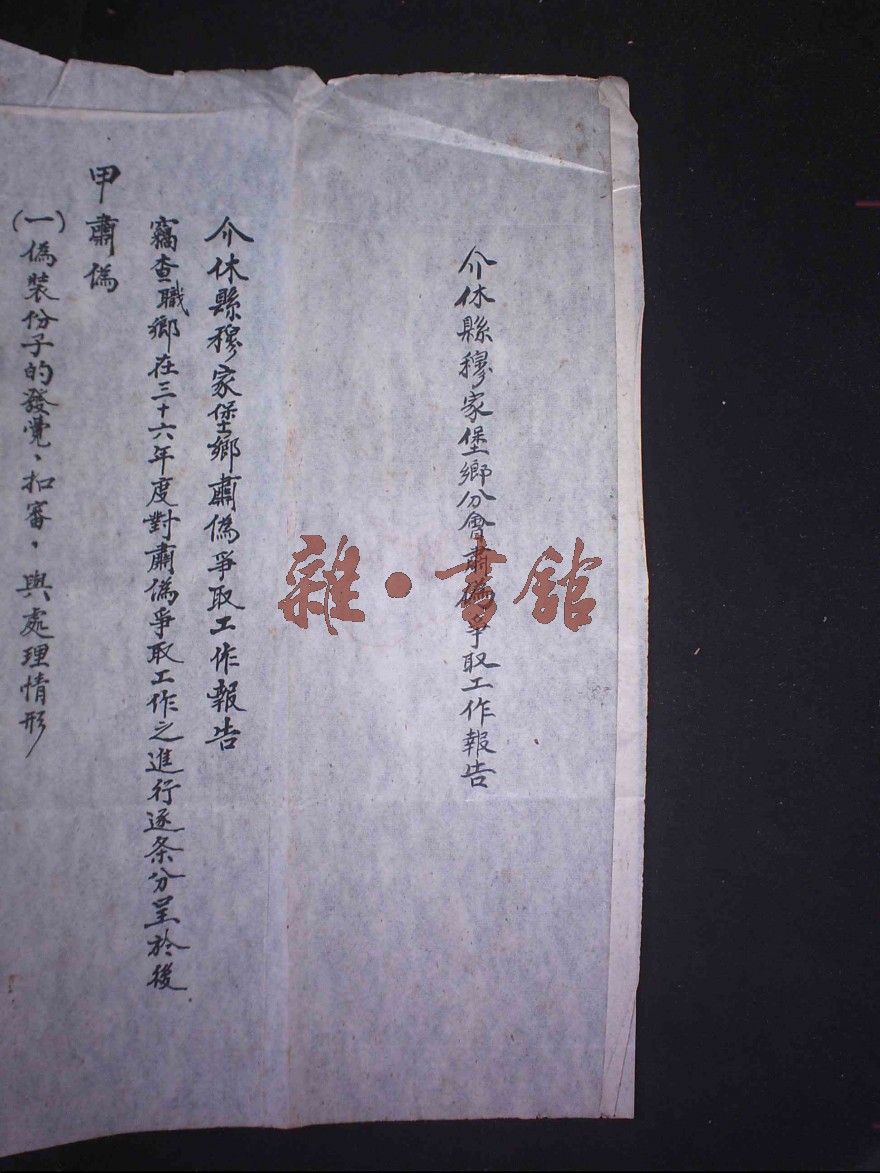 介休縣穆家堡鄉分會肅偽爭取工作報告
介休縣穆家堡鄉肅偽爭取工作報告
竊查職鄉在三十六年度對肅偽爭取工作之進行逐条分呈於後
甲肅偽
(一)偽裝份子的發覺、扣審,與處理情形
雜·書館